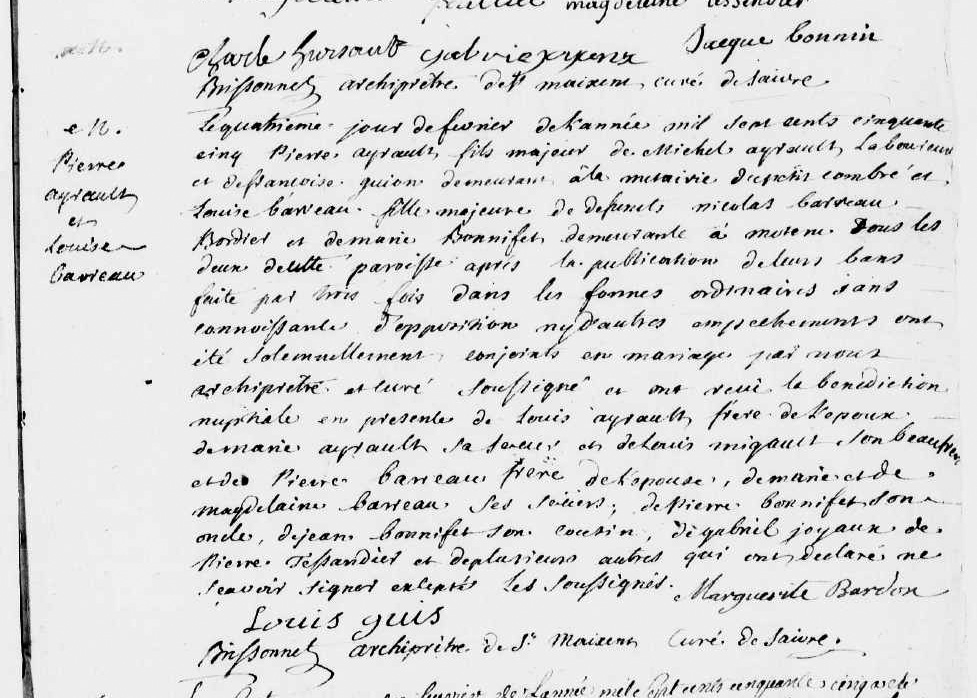 magdelaine Tessendier
Charle hursault Jacque bonnin
Brissonnet archiprêtre de st maixent curé de saivre
e n.
Pierre
ayrault
et
Louise
barreau
Le quatrieme jour de fevrier de l'année mil sept cents cinquante
cinq Pierre ayrault fils majeur de Michel ayrault Laboureur
et de francoise guion demeurant à la metairie du petit combré et
Louise barreau fille majeure de defuncts nicolas barreau
Bordier et de marie Bonnifet demeurante à Tous les
deux de cette paroisse après la publication de leurs bans
faite par trois fois dans les formes ordinaires sans
connoissance d'opposition ny d'autres empechements ont
été solemnellement conjoints en mariage par nous
archiprêtre et curé soussigné et ont reçu la benediction
nuptiale en presence de Louis ayrault frere de l'epoux
de marie ayrault sa soeur et de Louis migault son beaufrere
et de Pierre barreau frère de l'epouse, de marie et de
magdelaine barreau ses soeurs, de Pierre bonnifet son
oncle, de jean bonnifet son cousin, de gabriel joyaux de
Pierre Tessandier et de plusieurs autres qui ont declaré ne
sçavoir signer exceptés les soussignés. Marguerite Bardon
Louis guis
Brissonnet archiprêtre de St Maixent Curé de Saivre.
de l'année mil Sept cents cinquante cinq